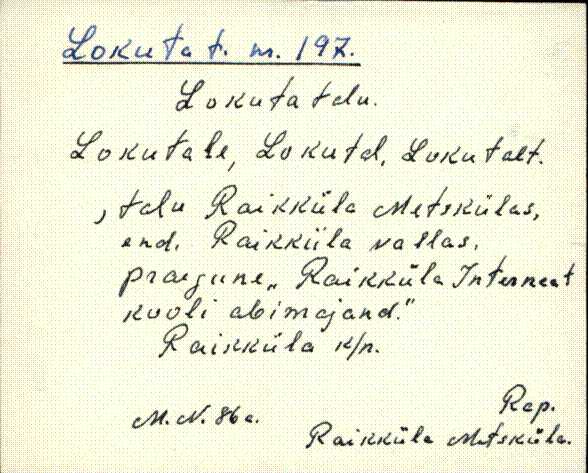 Lokuta t. nr. 197.
Lokuta talu.
Lokutale, Lokutal, Lokutalt.
, talu Raikküla Metskülas,
end. Raikküla vallas.
praegune „Raikküla Internaat
kooli abimajand."
Raikküla k/n.
M. N. 86 a.
Rap.
Raikküla Metsküla.